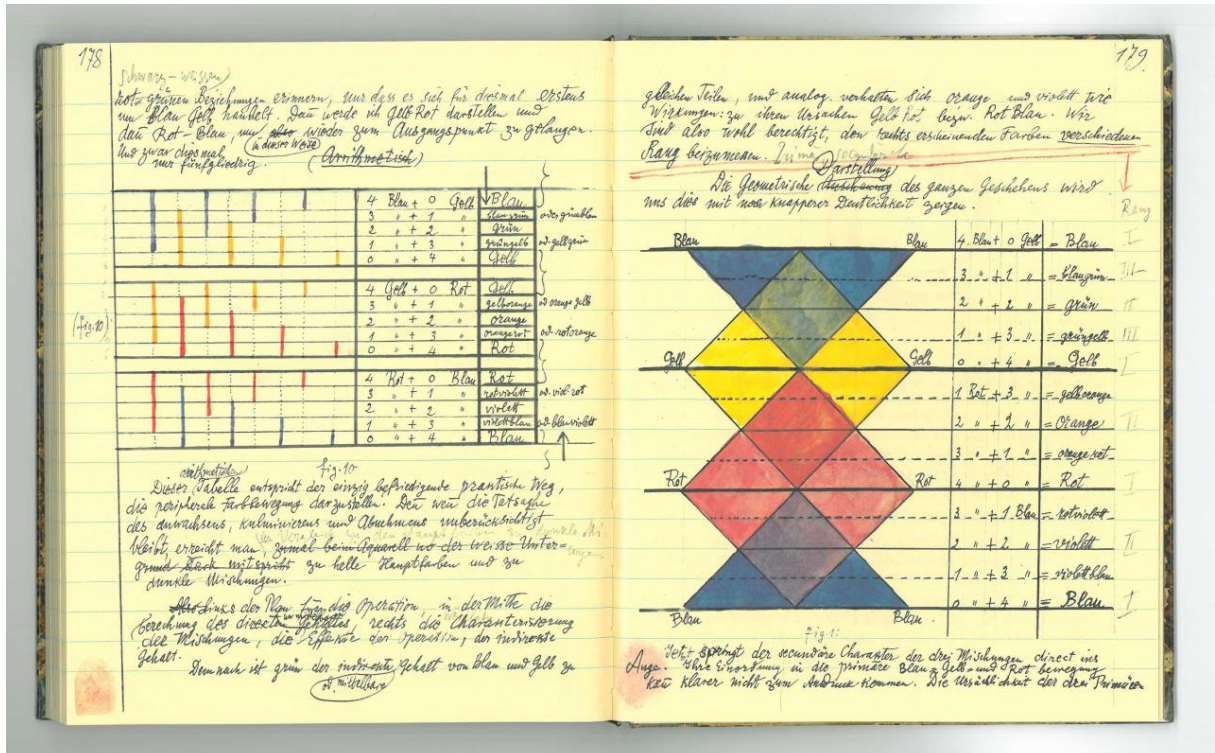 178
Schwarz-weissen
rot-grünen Beziehungen erinnern, nur dass es sich für diesmal erstens
um Blau Gelb handelt. Dan werde ich Gelb Rot darstellen und
dan Rot-Blau, um also wieder zum Ausgangspunkt zu gelangen.
(in dieser Weise)
Und zwar diesmal
nur fünfgliedrig. (Arithmetisch)
4 Blau + 0 Gelb Blau
3 " + 1 " blaugrün oder grünblau
2 " + 2 " grün
1 " + 3 " grüngelb od. gelbgrün
0 " + 4 " Gelb
4 Gelb + 0 Rot Gelb
3 " + 1 " gelborange od orange gelb
(fig. 10)
2 " + 2 " orange
1 " + 3 " orangerot od. rotorange
0 " + 4 " Rot
4 Rot + 0 Blau Rot
3 " + 1 " rotviolett od. viol-rot
2 " + 2 " violett
1 " + 3 " violettblau od blauviolett
0 " + 4 " Blau
fig. 10
arithmetischen
Dieser Tabelle entspricht der einzig befriedigende practische Weg,
die peripherale Farbbewegung darzustellen. Den wen die Tatsache
des Anwachsens, kulminierens und Abnehmens unberücksichtigt
bleibt, erreicht man, zumal beim Aquarell wo der weisse Unter-
grund stark mitspricht zu helle Hauptfarben und zu
dunkle Mischungen.
Also links der Plan für die Operation, in der Mitte die
Berechnung des directen Gehaltes, rechts die Characterisierung
der Mischungen, die Effekte der Operation, der indirecte
Gehalt.
Demnach ist grün der indirecte Gehalt von Blau und Gelb zu
(od. mittelbare)
179
gleichen Teilen, und analog verhalten sich orange und violett wie
Wirkungen: zu ihren Ursachen Gelb Rot bezw. Rot Blau. Wir
sind also wohl berechtigt, den rechts erscheinenden Farben verschiedenen
Rang beizumessen.
Darstellung
Die Geometrische Anschauung des ganzen Geschehens wird
uns dies mit noch knapperer Deutlichkeit zeigen.
Rang
Blau Blau 4 Blau + 0 Gelb = Blau I
3 " + 1 " = blaugrün III
2 " + 2 " = grün II
1 " + 3 " = grüngelb III
Gelb Gelb 0 " + 4 " = Gelb I
1 Rot + 3 " = gelborange
2 " + 2 " = Orange II
3 " + 1 " = orangerot
Rot Rot 4 " + 0 " = Rot I
3 " + 1 Blau = rotviolett
2 " + 2 " = violett II
1 " + 3 " = violettblau
0 " + 4 " = Blau I
Blau Blau
fig. 11
Jetzt springt der secundäre Character der drei Mischungen direct ins
Auge. Ihre Einordnung in die primäre Blau-Gelb- und Rot bewegung
kan klarer nicht zum Ausdruck kommen. Die Ursächlichkeit der drei Primären